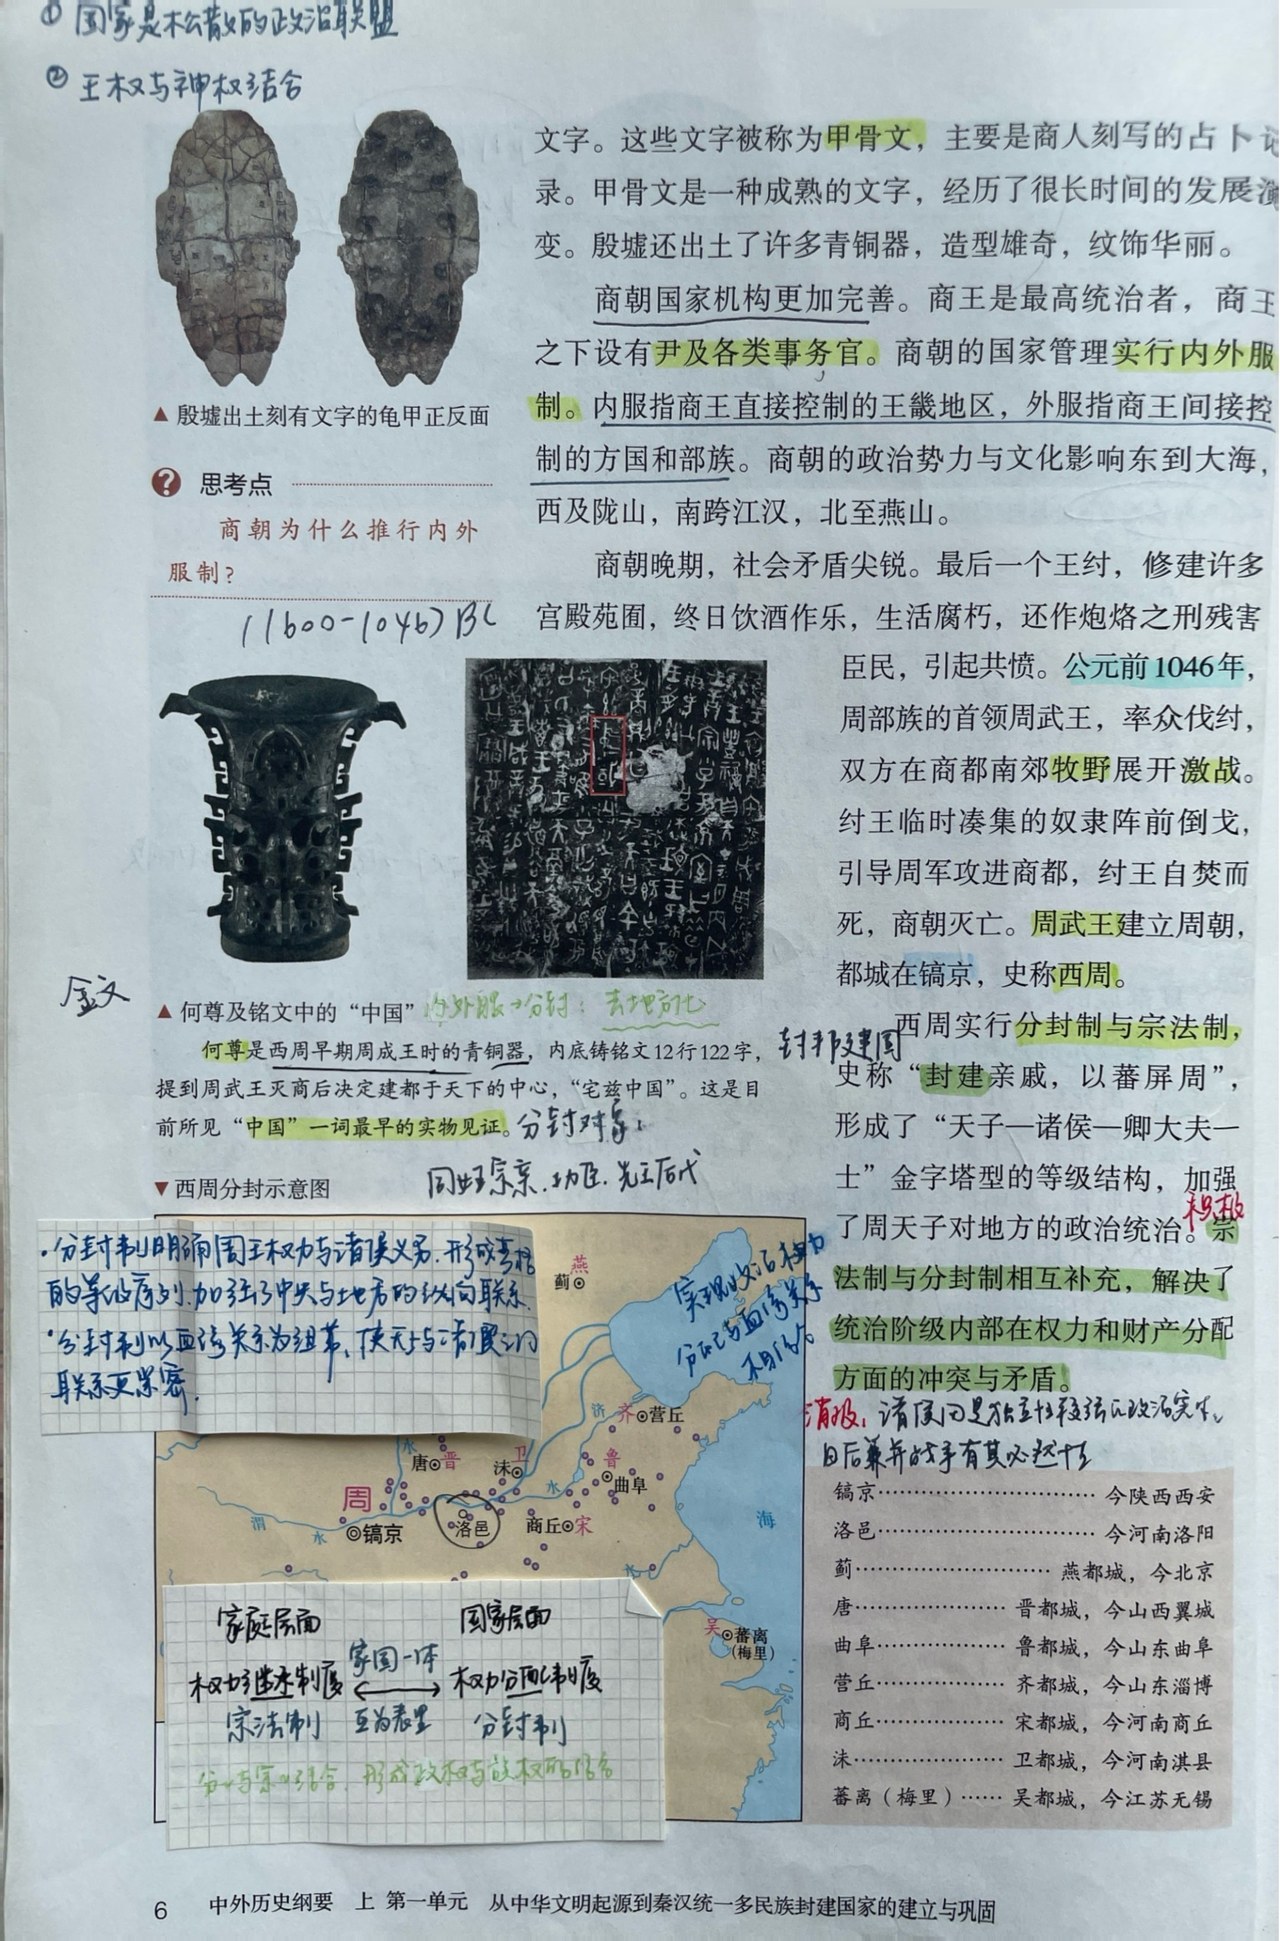 ① 国家是松散的政治联盟
② 王权与神权结合
文字。这些文字被称为甲骨文，主要是商人刻写的占卜记
录。甲骨文是一种成熟的文字，经历了很长时间的发展演
变。殷墟还出土了许多青铜器，造型雄奇，纹饰华丽。
商朝国家机构更加完善。商王是最高统治者，商王
之下设有尹及各类事务官。商朝的国家管理实行内外服
制。内服指商王直接控制的王畿地区，外服指商王间接控
制的方国和部族。商朝的政治势力与文化影响东到大海，
西及陇山，南跨江汉，北至燕山。
商朝晚期，社会矛盾尖锐。最后一个王纣，修建许多
宫殿苑囿，终日饮酒作乐，生活腐朽，还作炮烙之刑残害
臣民，引起共愤。公元前1046年，
周部族的首领周武王，率众伐纣，
双方在商都南郊牧野展开激战。
纣王临时凑集的奴隶阵前倒戈，
引导周军攻进商都，纣王自焚而
死，商朝灭亡。周武王建立周朝，
都城在镐京，史称西周。
封邦建国
西周实行分封制与宗法制，
史称“封建亲戚，以蕃屏周”，
形成了“天子—诸侯—卿大夫—
士”金字塔型的等级结构，加强
了周天子对地方的政治统治。宗
积极
法制与分封制相互补充，解决了
统治阶级内部在权力和财产分配
方面的冲突与矛盾。
消极：诸侯国是独立性较强的政治实体，
日后兼并战争有其必然性
▲ 殷墟出土刻有文字的龟甲正反面
? 思考点
商朝为什么推行内外
服制？
(1600-1046) BC
金文
▲ 何尊及铭文中的“中国”
内外服→分封：去地方化
何尊是西周早期周成王时的青铜器，内底铸铭文12行122字，
提到周武王灭商后决定建都于天下的中心，“宅兹中国”。这是目
前所见“中国”一词最早的实物见证。
分封对象：
同姓王宗亲、功臣、先王后代
▼ 西周分封示意图
·分封制明确周王权力与诸侯义务，形成严格
的等级序列，加强了中央与地方的纵向联系.
·分封制以血缘关系为纽带，使天子与诸侯之间
联系更紧密.
实现政治权力
分配与血缘关系
相结合
燕
蓟
济
水
齐
营丘
唐
晋
水
沬
卫
鲁
曲阜
水
周
镐京
渭
水
洛邑
商丘
宋
海
水
吴
蕃离
(梅里)
家庭层面
国家层面
家国一体
权力继承制度
权力分配制度
宗法制
互为表里
分封制
分封与宗法结合，形成政权与族权的结合
镐京……………………… 今陕西西安
洛邑……………………… 今河南洛阳
蓟…………………… 燕都城，今北京
唐……………… 晋都城，今山西翼城
曲阜…………… 鲁都城，今山东曲阜
营丘…………… 齐都城，今山东淄博
商丘…………… 宋都城，今河南商丘
沬……………… 卫都城，今河南淇县
蕃离（梅里）…… 吴都城，今江苏无锡
6 中外历史纲要 上 第一单元 从中华文明起源到秦汉统一多民族封建国家的建立与巩固